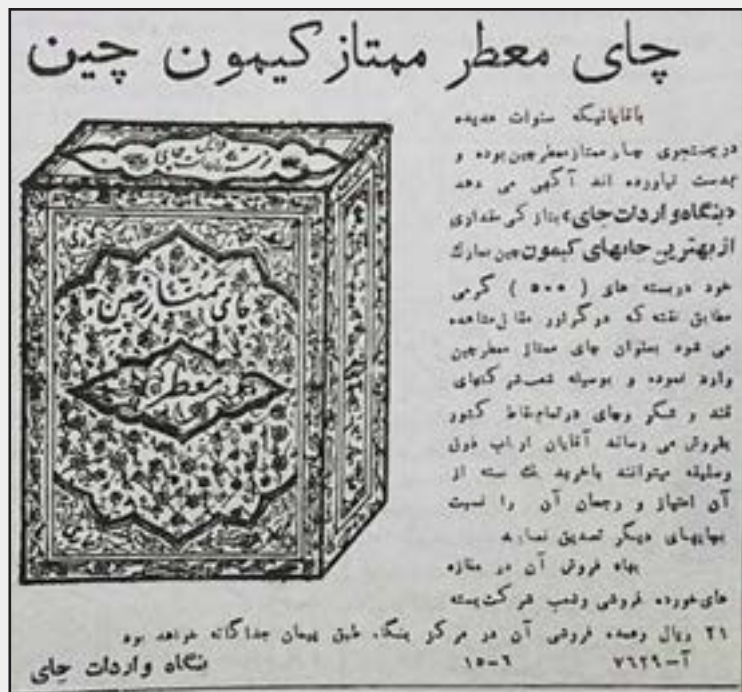 چای معطر ممتاز کیمون چین
باقایانیکه سنوات عدیده
در جستجوی چای ممتاز معطر چین بوده و
بدست نیاورده اند آگهی می دهد
«بنگاه واردات چای» بتازگی مقداری
از بهترین چایهای کیمون چین بمارك
خود در بسته های (۵۰۰) گرمی
مطابق نقشه که در گراور مقابل مشاهده
می شود بعنوان چای ممتاز معطر چین
وارد نموده و بوسیله شعب شرکتهای
قند و شکر وچای در تمام نقاط کشور
بفروش می رساند آقایان ارباب ذوق
وسلیقه میتوانند باخرید یك بسته از
آن امتیاز و رجحان آن را نسبت
بچایهای دیگر تصدیق نمایند
بهاء فروش آن در مغازه
های خورده فروشی وشعب شرکت بسته
۲۱ ریال وعمده فروشی آن در مرکز بنگاه طبق پیمان جداگانه خواهد بود
آ-۷۶۲۹ ۶-۱۵
بنگاه واردات چای
چای ممتاز چین
معطر